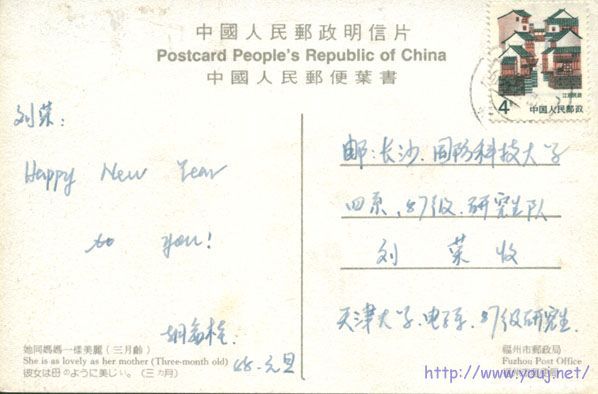 中國人民郵政明信片
Postcard People's Republic of China
中國人民郵便葉書
江苏民居
4分
中国人民邮政
刘荣:
Happy New Year
to you!
88.元旦
邮:长沙.国防科技大学
四系.87级.研究生队
刘 荣 收
天津大学.电子系.87级研究生.
她同媽媽一樣美麗(三月齡)
She is as lovely as her mother (Three-month old)
彼女は母のように美しい。(三カ月)
福州市郵政局
Fuzhou Post Office
福州市郵便局
http://www.youj.net/